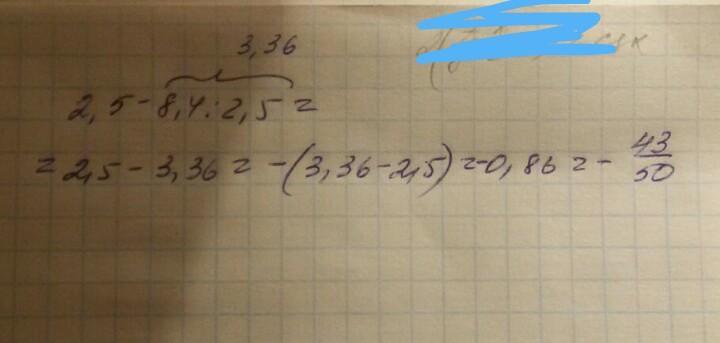 3,36
2,5-8,4:2,5=
=2,5-3,36=-(3,36-2,5)=-0,86=-43/50